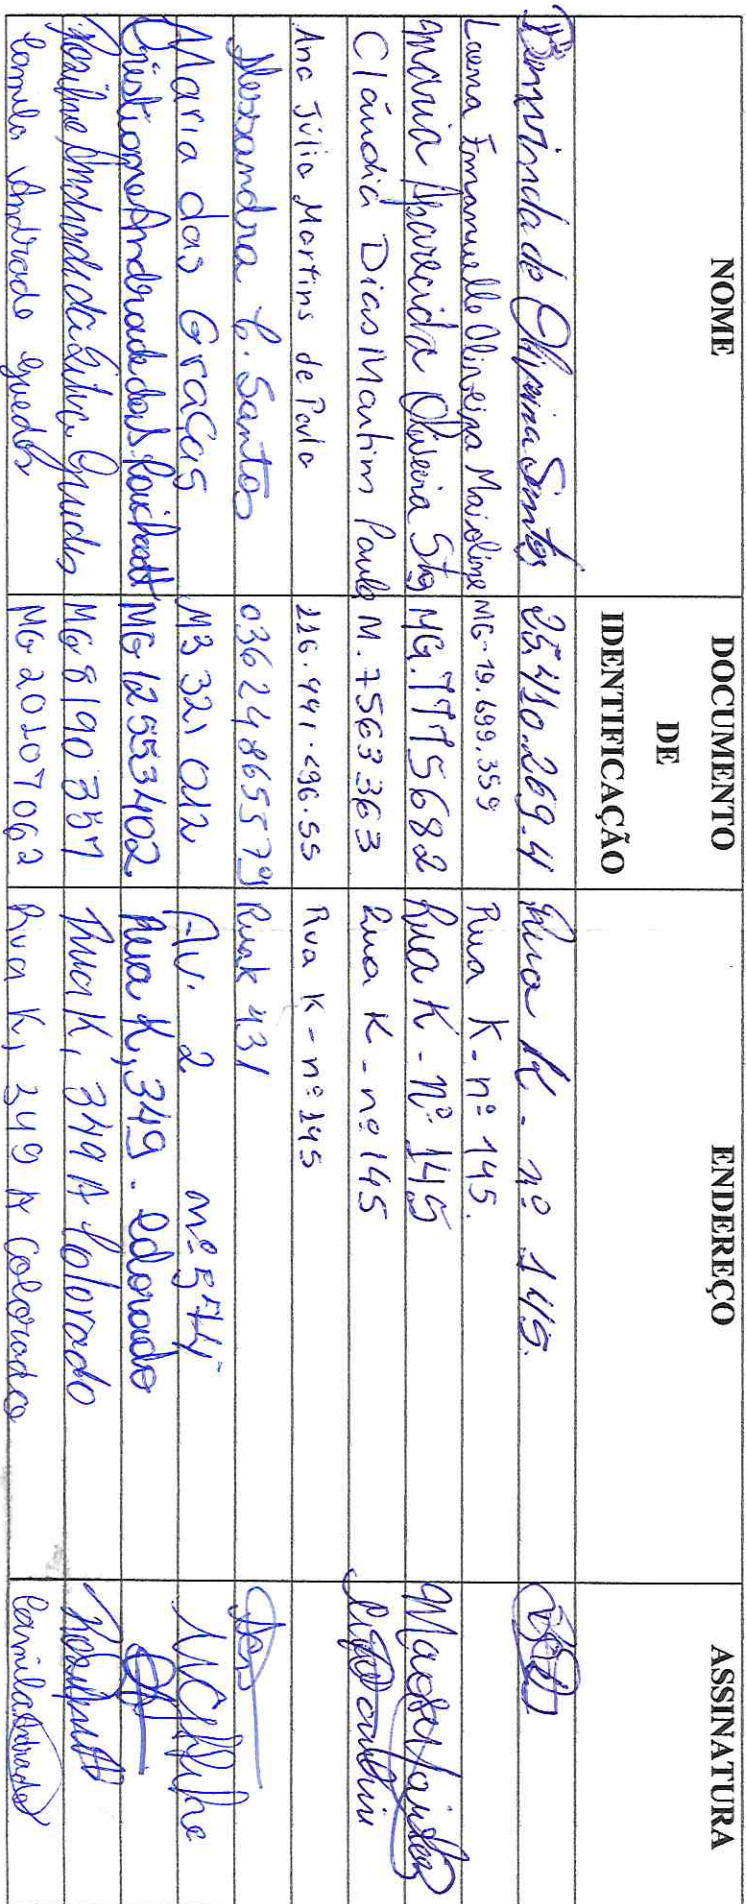 NOME DOCUMENTO DE IDENTIFICAÇÃO ENDEREÇO ASSINATURA
Benvinda de Oliveira Santos 25.410.269.4 Rua K - nº 145.
Laena Emanuelle Oliveira MG-19.699.359 Rua K - nº 145.
Maria Aparecida Oliveira Sts MG.7775682 Rua K - Nº 145
Cláudia Dias Martins Paula M.7563363 Rua K - nº 145
Ana Júlia Martins de Paula Rua K - nº 145
Alessandra C. Santos 03624865579 Rua K 431
Maria das Graças M3 321 012 Av. 2 nº 574
Cristiane Andrade dos MG 12553402 Rua K, 349 - Colorado
Andrade da Silva Guedes MG 8190357 Rua K, 349 A Colorado
Camila Andrade Guedes MG 20207062 Rua K, 349 A Colorado Camila Andrade